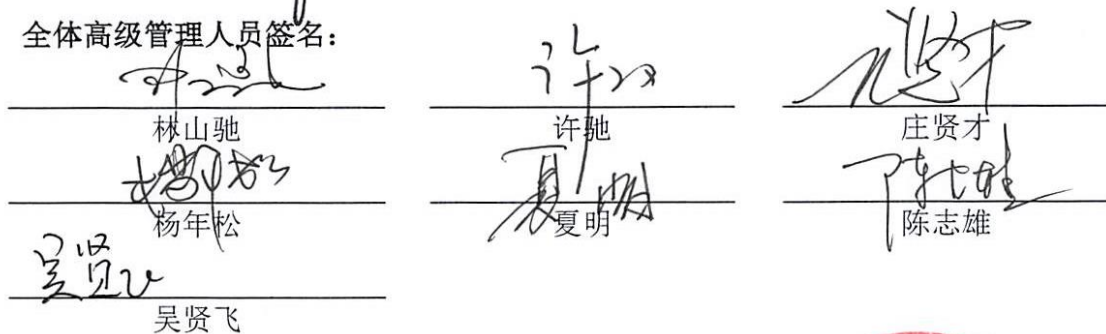 全体高级管理人员签名：
林山驰 许驰 庄贤才
杨年松 夏明 陈志雄
吴贤飞